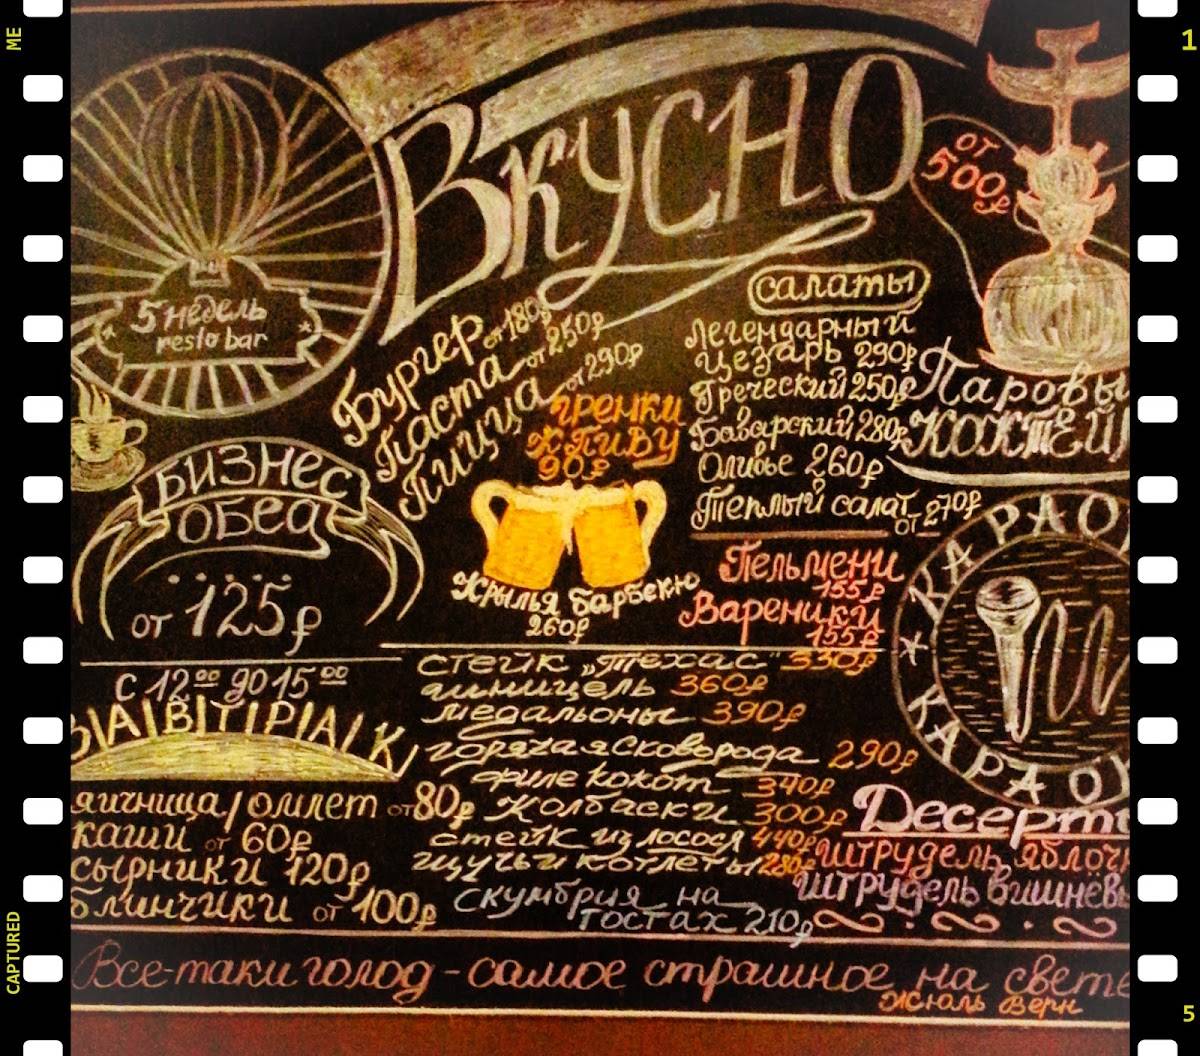 ME
CAPTURED
1
5
Вкусно
5 недель
resto bar
от
500₽
Паровы
коктейл
Бургер от 180₽
Паста от 250₽
Пицца от 290₽
гренки
к пиву
90₽
Крылья барбекю
260₽
салаты
Легендарный
цезарь 290₽
Греческий 250₽
Баварский 280₽
Оливье 260₽
Теплый салат
от 270₽
Пельмени
155₽
Вареники
155₽
КАРАО
КАРАО
БИЗНес
Обед
от 125₽
с 12 00 до 15 00
ЗАВТРАК
яичница/омлет от 80₽
каши от 60₽
сырники 120₽
блинчики от 100₽
стейк „Техас" 330₽
шницель 360₽
медальоны 390₽
горячая сковорода 290₽
филе кокот 340₽
Колбаски 300₽
стейк из лосося 440₽
щучьи котлеты 280₽
скумбрия на
тостах 210₽
Десерт
штрудель яблоч
штрудель вишнёв
Все-таки голод - самое страшное на свете
Жюль Верн